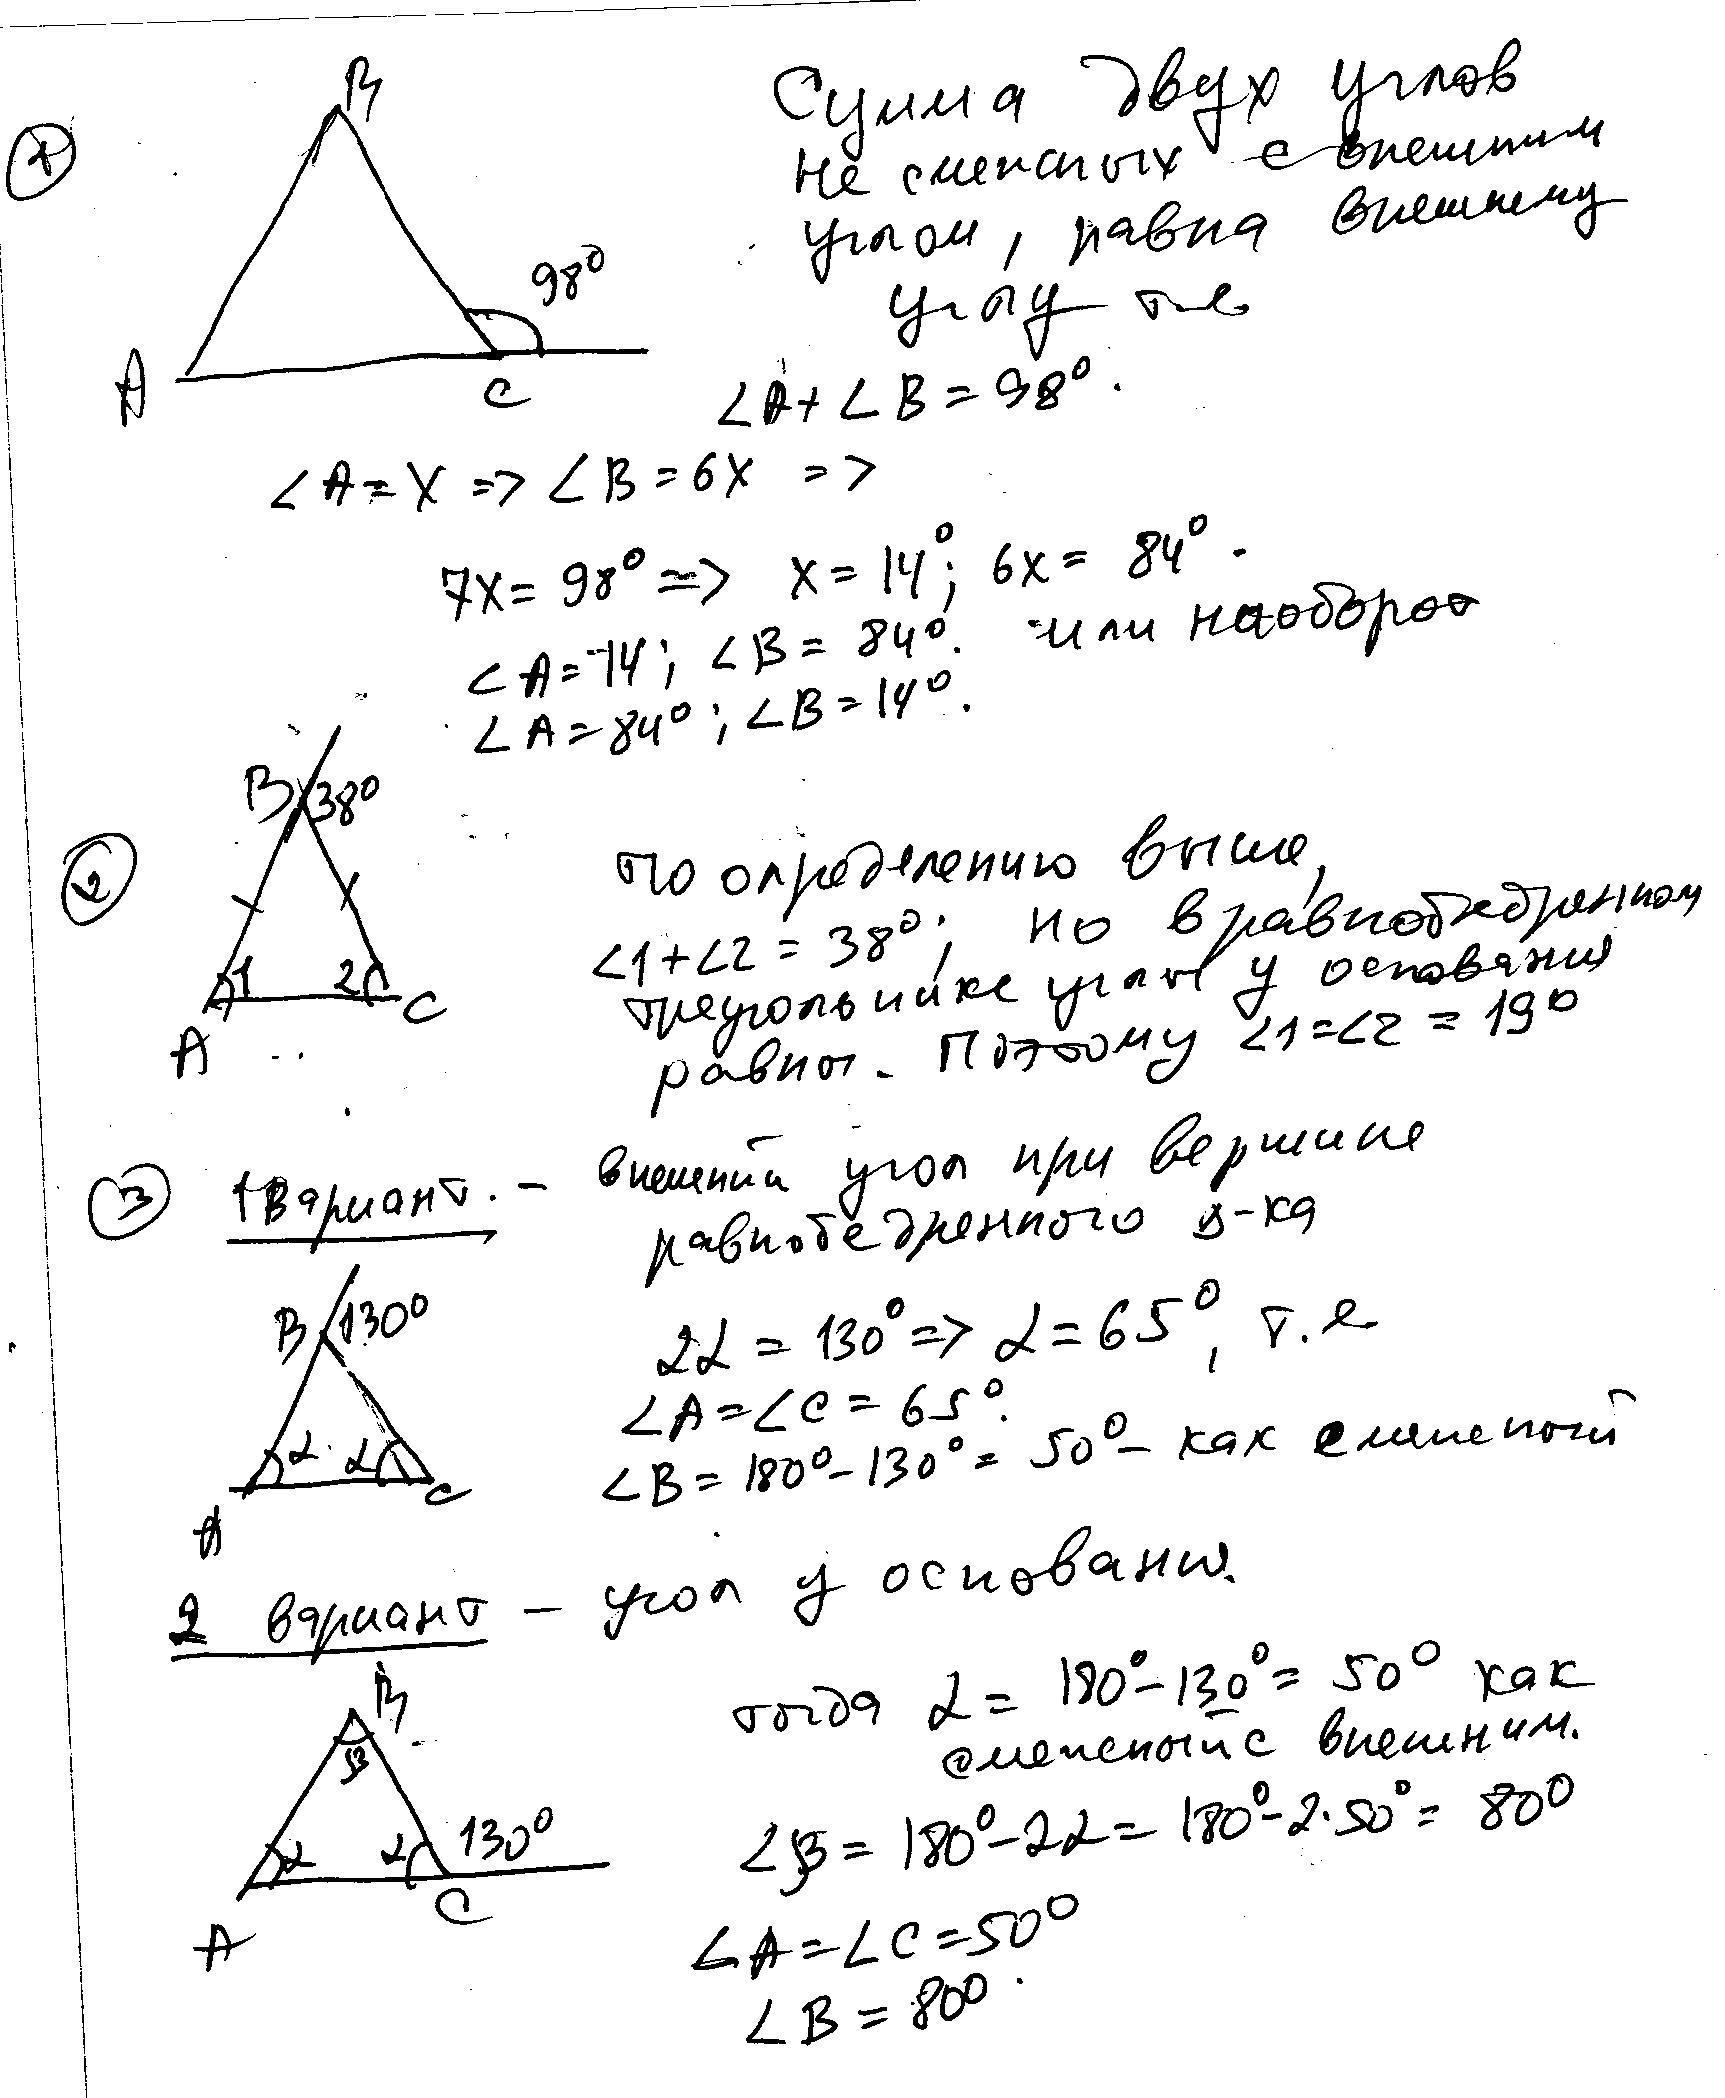 1
B
Сумма двух углов
не смежных с внешним
углом, равна внешнему
углу т.е
98°
A
C
∠A+∠B=98°.
∠A=x => ∠B=6x =>
7x=98° => x=14°; 6x=84°.
∠A=14; ∠B=84°. или наоборот
∠A=84°; ∠B=14°.
2
B 38°
1 2
A C
По определению выше,
∠1+∠2=38°; но в равнобедренном
треугольнике углы у основания
равны. Поэтому ∠1=∠2=19°
3 1 вариант. - внешний угол при вершине
равнобедренного Δ-ка
B 130°
α α
A C
2α=130° => α=65°, т.е
∠A=∠C=65°.
∠B=180°-130°=50°- как смежный
2 вариант - угол у основания.
B
β
α α 130°
A C
тогда α=180°-130°=50° как
смежный с внешним.
∠β=180°-2α=180°-2·50°=80°
∠A=∠C=50°
∠B=80°